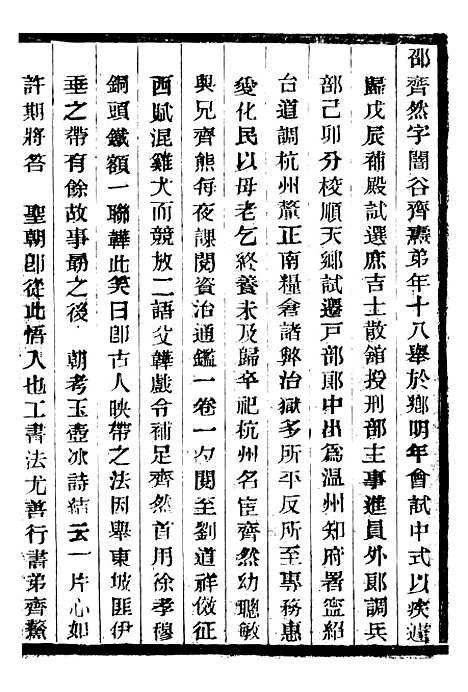 邵齊然字闇谷齊燾弟年十八舉於鄉明年會試中式以疾遄
歸戊辰補殿試選庶吉士散館授刑部主事進員外郎調兵
部己卯分校順天鄉試遷戶部郎中出爲溫州知府署寧紹
台道調杭州釐正南糧倉諸弊治獄多所平反所至專務惠
愛化民以母老乞終養未及歸卒祀杭州名宦齊然幼聰敏
與兄齊熊每夜課閱資治通鑑一卷一夕閱至劉道祥倣征
西賦混雞犬而競放二語父韡戲令補足齊然首用徐孝穆
銅頭鐵額一聯韡此笑曰卽古人映帶之法因舉東坡匪伊
垂之帶有餘故事勗之後 朝考玉壺冰詩結云一片心如
許期將答 聖朝卽從此悟入也工書法尤善行書弟齊鰲